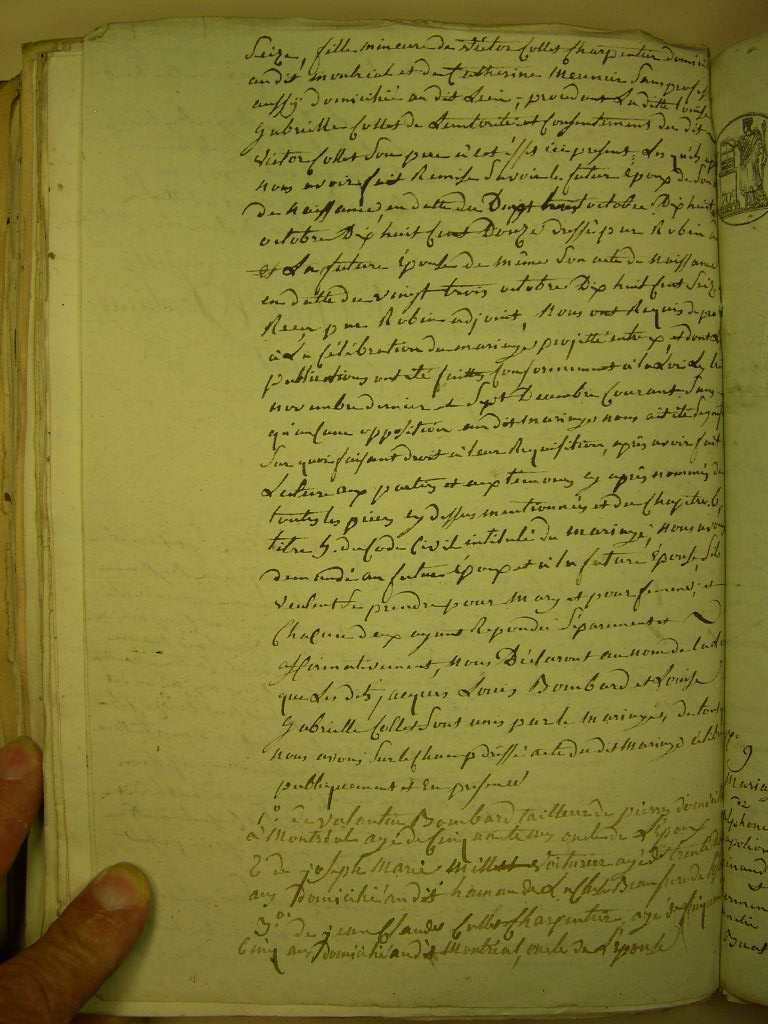 Seize, fille mineure de victor Collet Charpentier domici
au dit montréal et de Catherine Meunier Sans profes
aussy domiciliée au dit Lieu, procedant La ditte Louise
Gabrielle Collet de L'autorité et Consentement du dit
victor Collet Son pere à cet effet ici present; Les quels
nous avoir fait Remise Savoir le futur Epoux de Son
de naissance, en datte du Vingt trois octobre Dix huit
octobre Dix huit Cent Douze dressé par Robin
et La future Epouse de même Son acte de naissance
en datte du vingt trois octobre Dix huit Cent Seize
Reçu par Robin adjoint, Nous ont Requis de pro
à La Célébration du mariage projetté entre eux et dont
publications ont été faittes Conformement à la Loi Les
novembre dernier et Sept Decembre Courant Sans
qu'aucune opposition au dit mariage nous ait été
Sur quoi faisant droit à leur Requisition, après avoir fait
Lecture aux parties et aux temoins cy après nommés de
touttes les pieces cy dessus mentionnées et du Chapitre 6,
titre 5. du Code Civil intitulé du mariage; nous avons
demandé au futur Epoux et à la future Epouse, S'ils
veulent Se prendre pour mary et pour femme; et
Chacun d'eux ayant Repondu Séparement et
affirmativement, nous Déclarons au nom de la Loi
que Les dits jacques Louis Bombard et Louise
Gabrielle Collet Sont unis par le mariage, de tout
nous avons Sur le Champ dressé acte du dit Mariage
publiquement et En presence
1.º de valentin Bombard tailleur de pierres domicilié
à Montréal agé de Cinquante ans oncle de L'époux
2 de joseph Marie Millot voiturier agé de trente
ans Domicilié au dit hameau de
3.º de jean Claude Collet Charpentier, agé de
Cinq ans Domicilié au dit Montréal, oncle de L'épouse
9
Maria
de
et